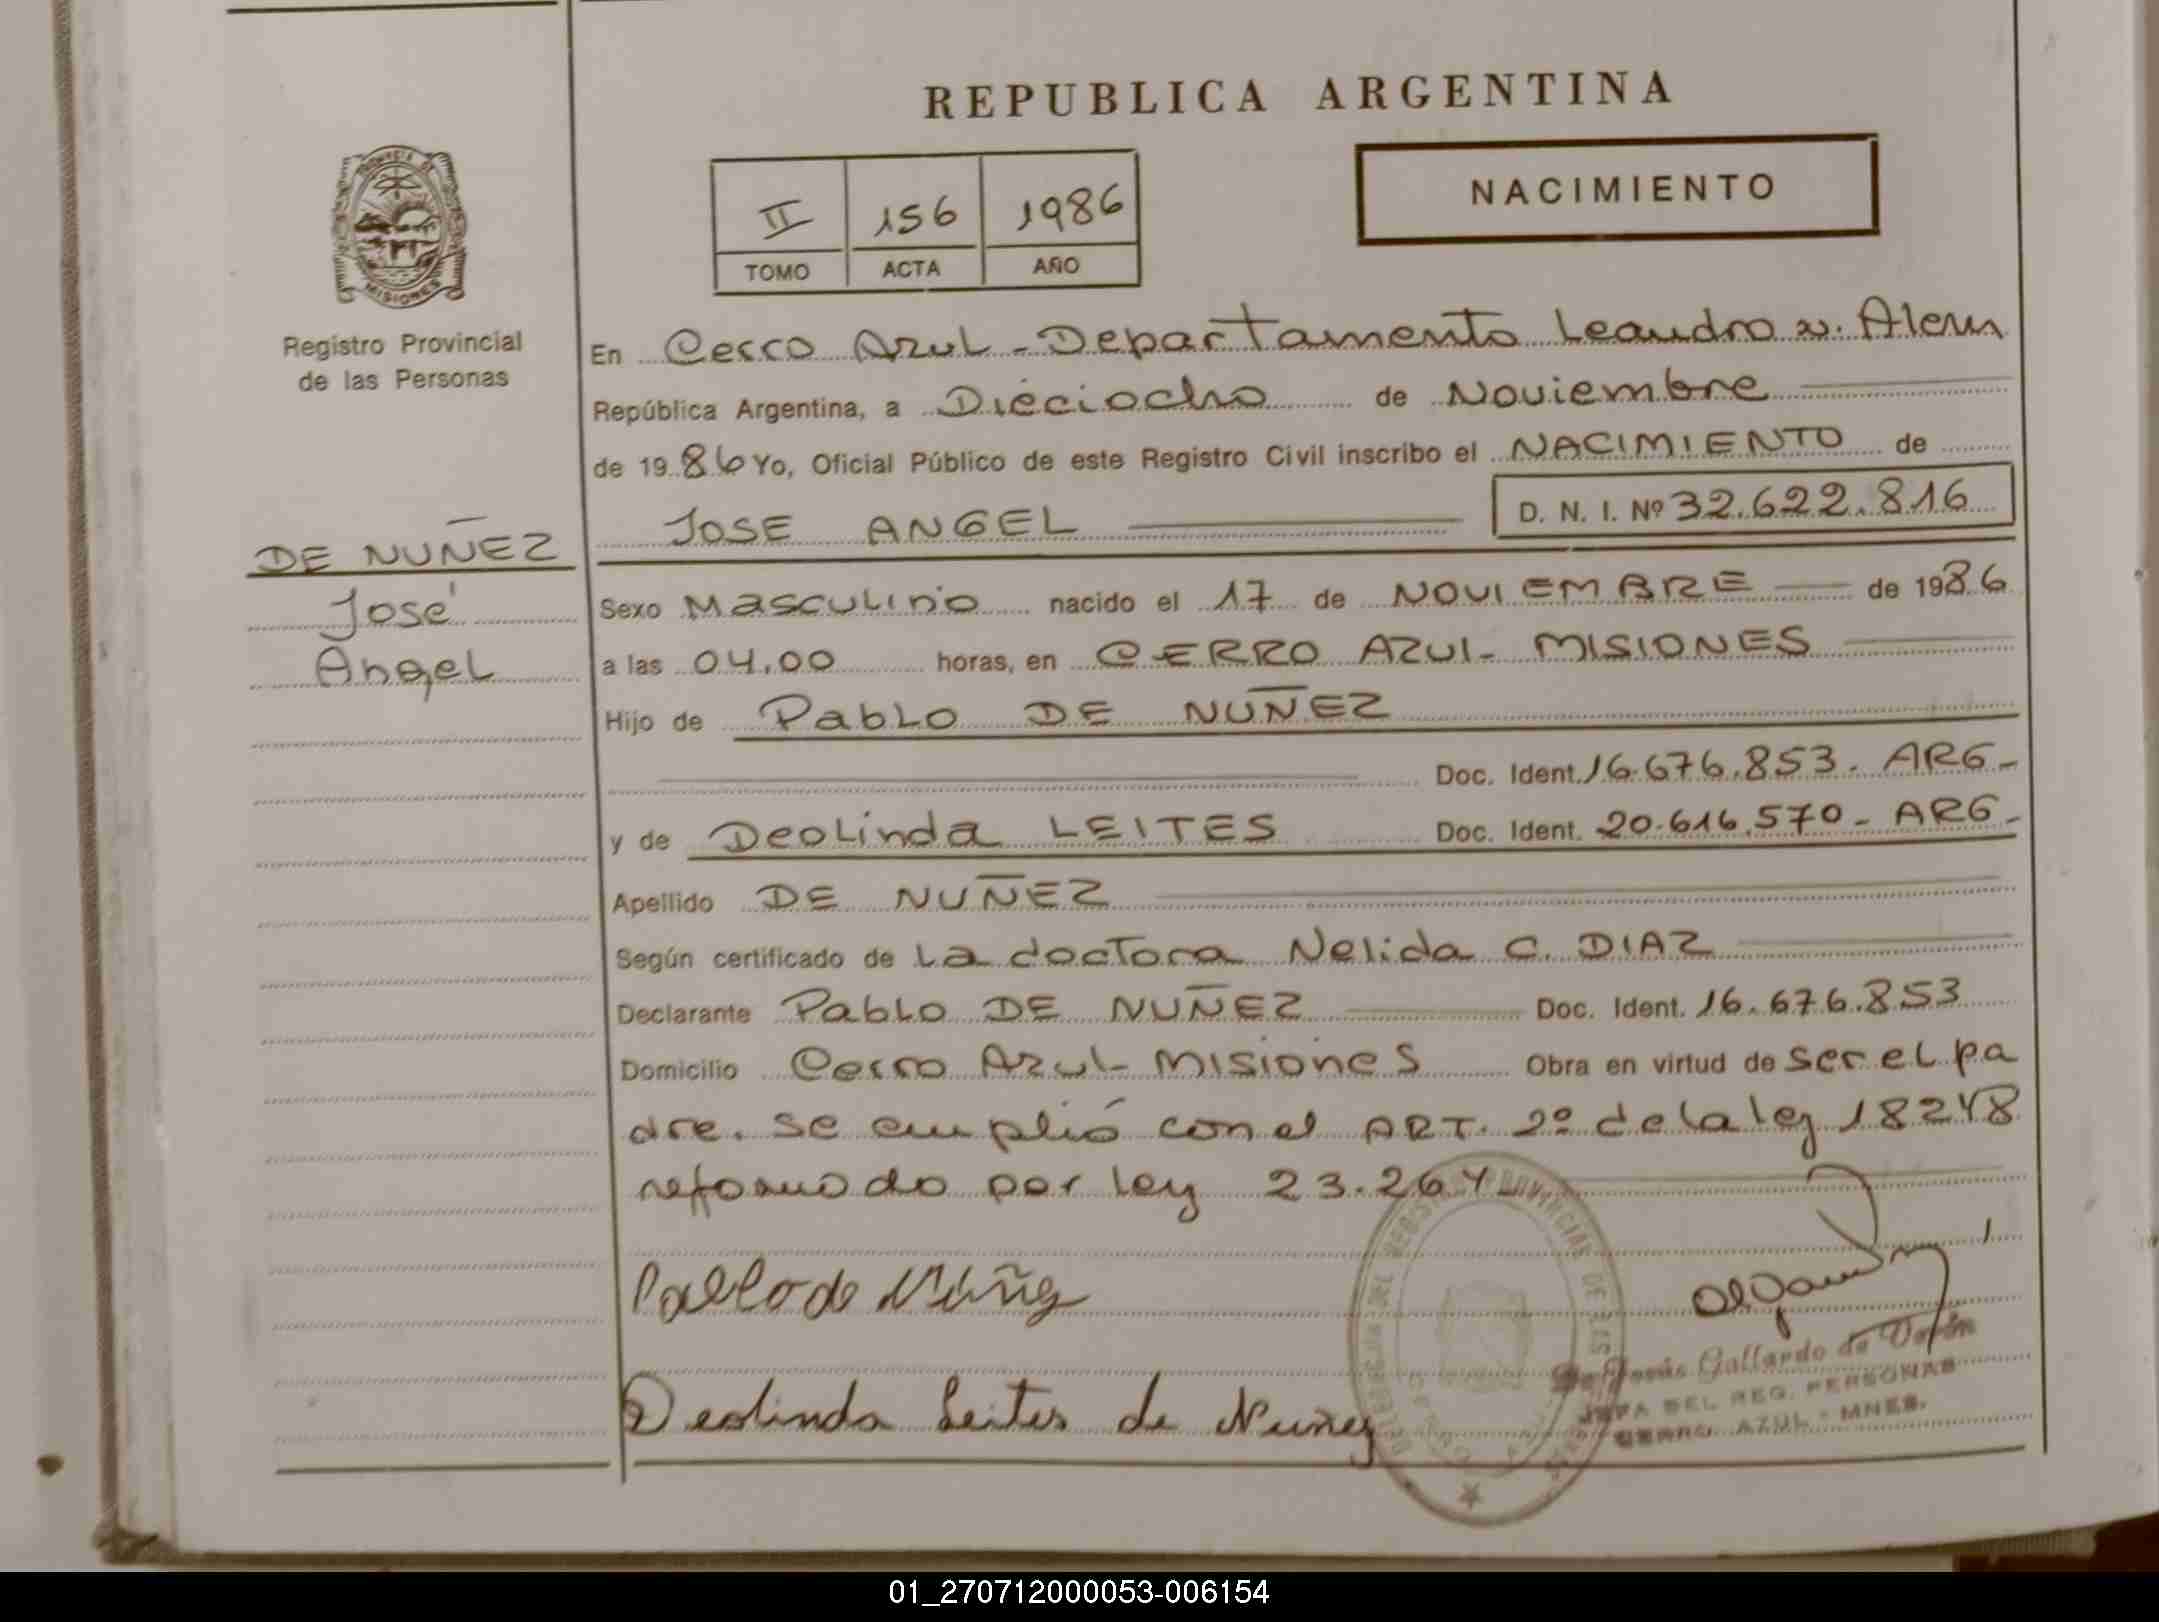 REPUBLICA ARGENTINA
NACIMIENTO
II 156 1986
TOMO ACTA AÑO
PROVINCIA DE
MISIONES
Registro Provincial
de las Personas
DE NUÑEZ
José
Angel
En Cerro Azul - Departamento Leandro N. Alem
República Argentina, a Dieciocho de Noviembre
de 1986 Yo, Oficial Público de este Registro Civil inscribo el NACIMIENTO de
JOSE ANGEL D. N. I. Nº 32.622.816
Sexo Masculino nacido el 17 de NOVIEMBRE de 1986
a las 04.00 horas, en CERRO AZUL- MISIONES
Hijo de Pablo DE NUÑEZ
Doc. Ident. 16.676.853. ARG-
y de Deolinda LEITES Doc. Ident. 20.616.570- ARG-
Apellido DE NUÑEZ
Según certificado de La doctora Nelida C. DIAZ
Declarante Pablo DE NUÑEZ Doc. Ident. 16.676.853
Domicilio Cerro Azul- Misiones Obra en virtud de ser el pa
dre. se cumplió con el ART. 2º de la ley 18248
reformado por ley 23.264
Pablo de Núñez
Deolinda Leites de Nuñez
Gallardo de
JEFA DEL REG. PERSONAS
CERRO AZUL - MNES.
01_270712000053-006154